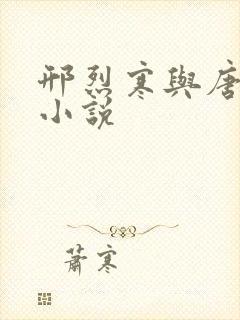 邢烈寒與唐
小說
蕭寒